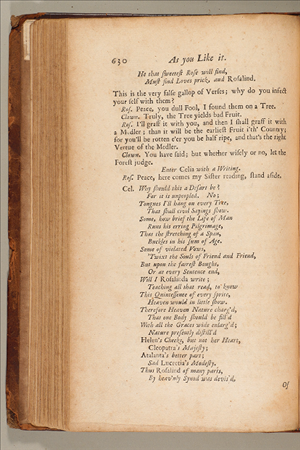 630 As you Like it.
He that sweetest Rose will find,
Must find Loves prick, and Rosalind.
This is the very false gallop of Verses; why do you infect
your self with them?
Ros. Peace, you dull Fool, I found them on a Tree.
Clown. Truly, the Tree yields bad Fruit.
Ros. I'll graff it with you, and then I shall graff it with
a Medler; then it will be the earliest Fruit i'th' Country;
for you'll be rotten e'er you be half ripe, and that's the right
Virtue of the Medler.
Clown. You have said; but whether wisely or no, let the
Forest judge.
Enter Celia with a Writing.
Ros. Peace, here comes my Sister reading, stand aside.
Cel. Why should this a Desart be?
For it is unpeopled. No;
Tongues I'll hang on every Tree,
That shall civil Sayings show.
Some, how brief the Life of Man
Runs his erring Pilgrimage,
That the stretching of a Span,
Buckles in his sum of Age.
Some of violated Vows,
'Twixt the Souls of Friend and Friend,
But upon the fairest Boughs,
Or at every Sentence end,
Will I Rosalinda write;
Teaching all that read, to know
This Quintessence of every Sprite,
Heaven would in little show.
Therefore Heaven Nature charg'd,
That one Body should be fill'd
With all the Graces wide enlarg'd;
Nature presently distill'd
Helen's Cheeks, but not her Heart,
Cleopatra's Majesty;
Atalanta's better part;
Sad Lucretia's Modesty.
Thus Rosalind of many parts,
By heav'nly Synod was devis'd,
Of